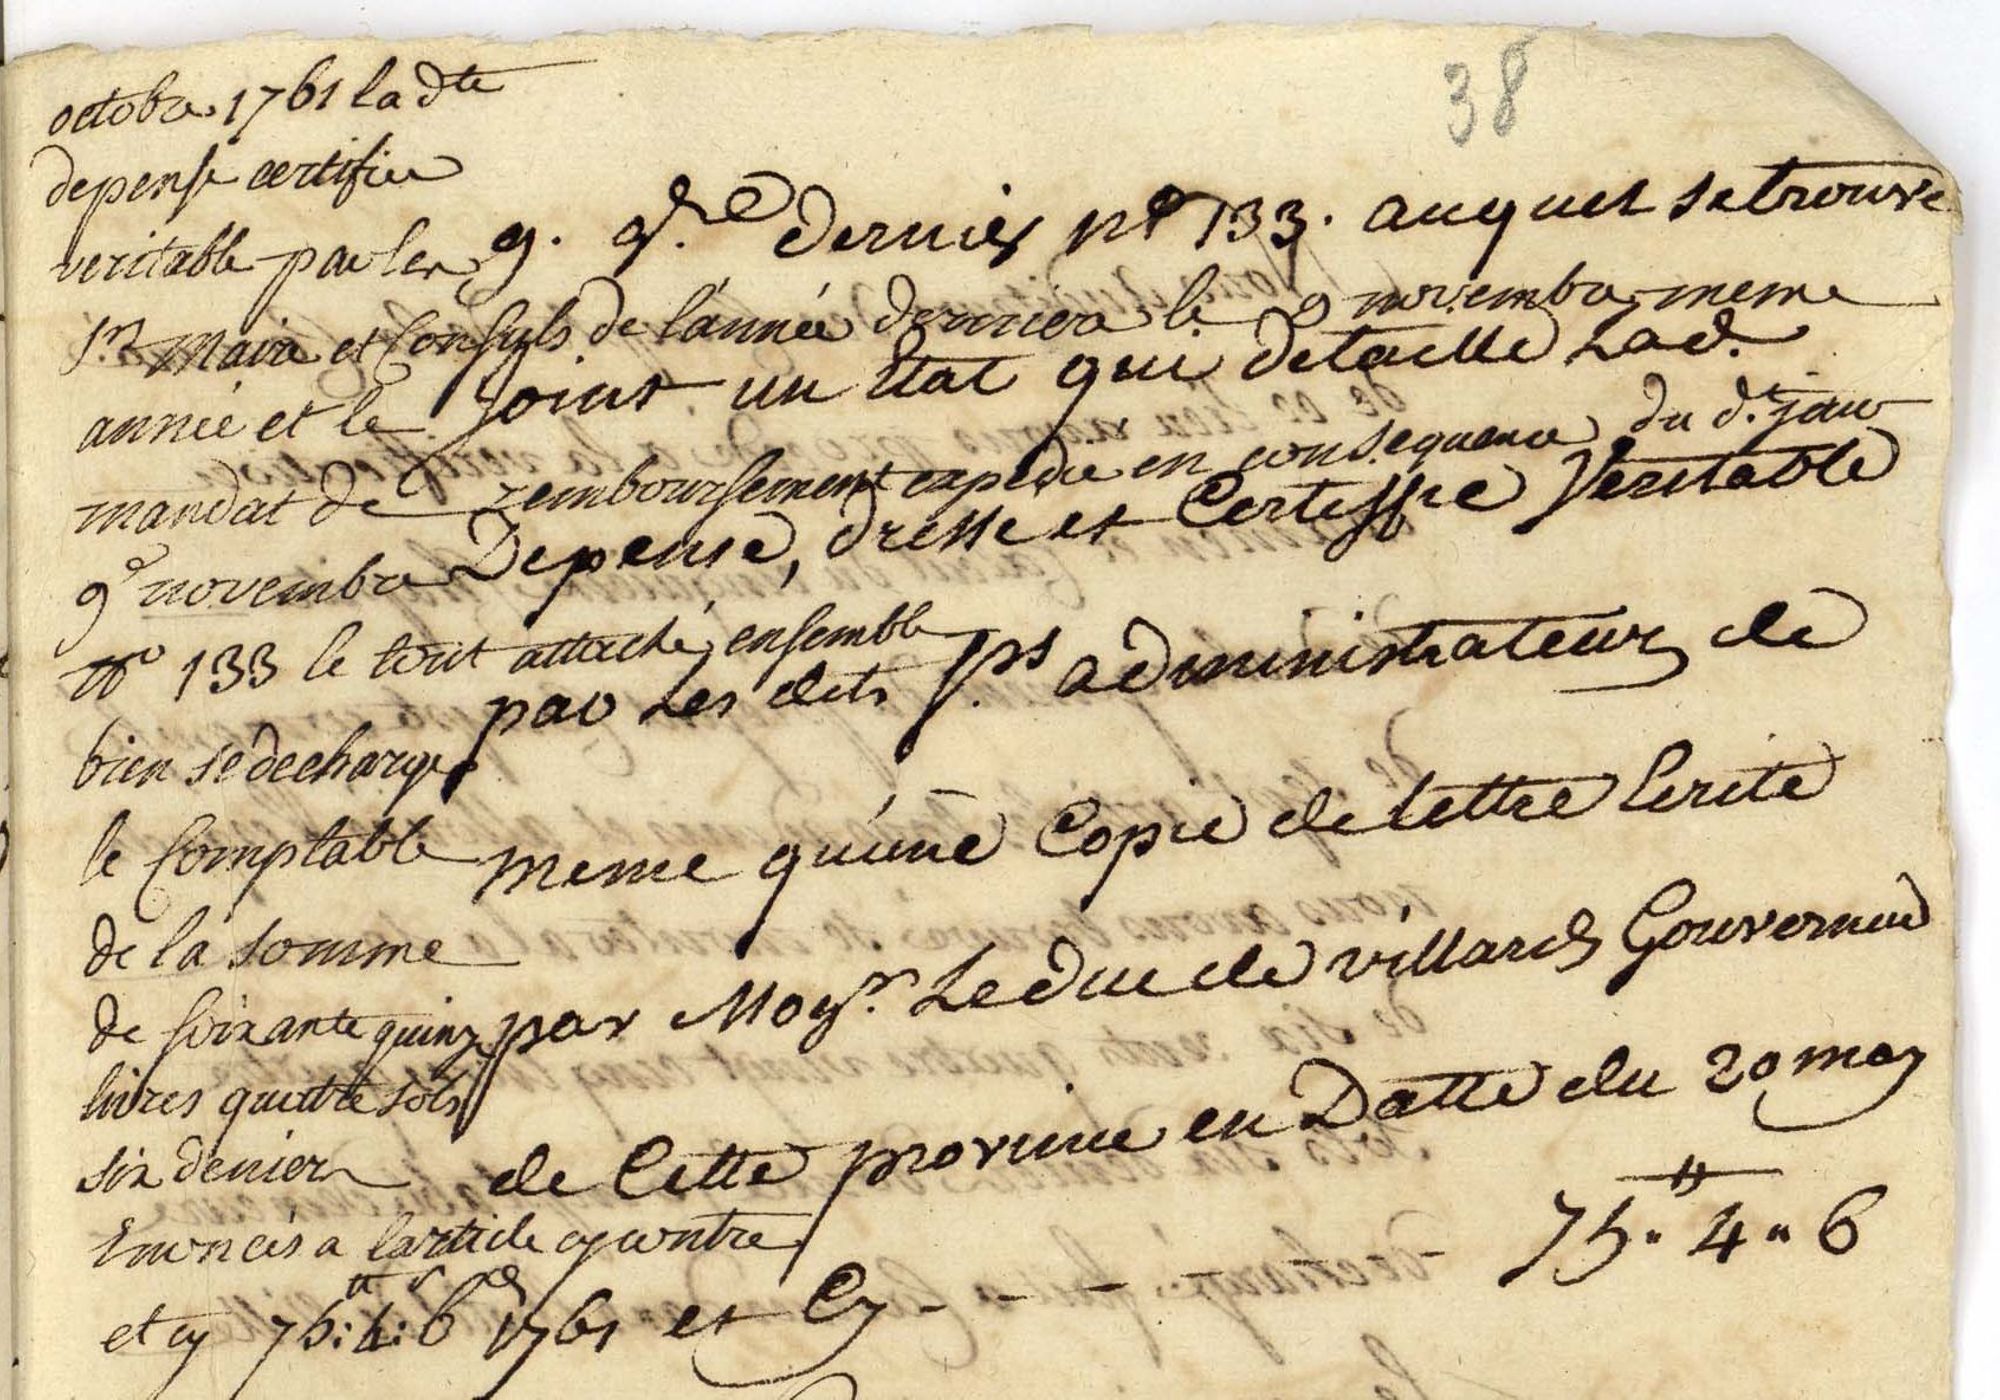 38
octobre 1761 la dte
depense certifiée
veritable par les
srs Maire et Consuls de l'année derniere le 9 novembre meme
année et le
mandat de remboursement expedié en consequence du dt jour
9e novembre
no 133 le tout attaché ensemble
bien se decharge
le Comptable
de la somme
de soixante quinze
livres quattre sols
six deniers
Enoncés a l'article cy contre
et cy 75tt: 4s: 6d
9. 9.re dernier no 133. auquel se trouve
joint un Etat qui detaille Lad.
Depense, dressé et Certiffié Veritable
par Les dits srs administrateurs de
meme qu'une Copie de lettre Ecrite
par Mogr. Le duc de villards Gouverneur
de Cette province en Datte du 20 may
1761 et Cy - - - - 75tt. 4 " 6